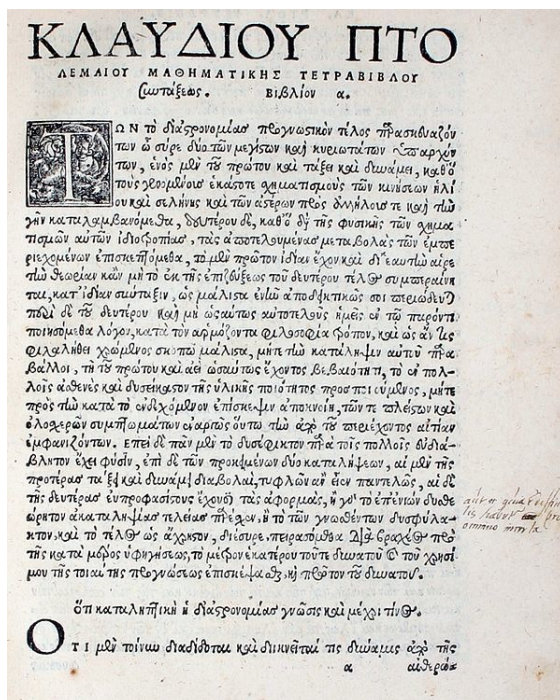 ΚΛΑΥΔΙΟΥ ΠΤΟ
ΛΕΜΑΙΟΥ ΜΑΘΗΜΑΤΙΚΗΣ ΤΕΤΡΑΒΙΒΛΟΥ
Συντάξεως. Βιβλίον α.
ΤΩΝ τὸ δι᾽ ἀστρονομίας προγνωστικὸν τέλος παρασκευαζόν
των ὦ σύρε δύο τῶν μεγίστων καὶ κυριωτάτων ὑπαρχόν
των, ἑνὸς μὲν τοῦ πρώτου καὶ τάξει καὶ δυνάμει, καθ᾽ ὃ
τοὺς γινομένους ἑκάστοτε σχηματισμοὺς τῶν κινήσεων ἡλί
ου καὶ σελήνης καὶ τῶν ἀστέρων πρὸς ἀλλήλους τε καὶ τὴν
γῆν καταλαμβανόμεθα, δευτέρου δὲ, καθ᾽ ὃ διὰ τῆς φυσικῆς τῶν σχημα
τισμῶν αὐτῶν ἰδιοτροπίας, τὰς ἀποτελουμένας μεταβολὰς τῶν ἐμπε
ριεχομένων ἐπισκεπτόμεθα, τὸ μὲν πρῶτον ἴδιαν ἔχον καὶ δι᾽ ἑαυτὴν αἱρε
τὴν θεωρίαν κἂν μὴ τὸ ἐκ τῆς ἐπιζεύξεως τοῦ δευτέρου τέλος συμπεραίνη
ται, κατ᾽ ἰδίαν σύνταξιν, ὡς μάλιστα ἐνῆν ἀποδεικτικῶς σοι περιώδευται
περὶ δὲ τοῦ δευτέρου καὶ μὴ ὡσαύτως αὐτοτελοῦς ἡμεῖς ἐν τῷ παρόντι
ποιησόμεθα λόγον, κατὰ τὸν ἁρμόζοντα φιλοσοφίᾳ τρόπον, καὶ ὡς ἄν τις
φιλαλήθει χρώμενος σκοπῷ μάλιστα, μήτε τὴν κατάληψιν αὐτοῦ παρα
βάλλοι, τῇ τοῦ πρώτου καὶ ἀεὶ ὡσαύτως ἔχοντος βεβαιότητι, τὸ ἐν πολ-
λοῖς ἀσθενὲς καὶ δυσείκαστον τῆς ὑλικῆς ποιότητος προσποιούμενος, μήτε
πρὸς τὴν κατὰ τὸ ἐνδεχόμενον ἐπίσκεψιν ἀποκνοίη, τῶν τε πλείστων καὶ
ὁλοσχερῶν συμπτωμάτων ἐναργῶς οὕτω τὴν ἀπὸ τοῦ περιέχοντος αἰτίαν
ἐμφανιζόντων. ἐπεὶ δὲ πᾶν μὲν τὸ δυσέφικτον παρὰ τοῖς πολλοῖς εὐδιά-
βλητον ἔχει φύσιν, ἐπὶ δὲ τῶν προκειμένων δύο καταλήψεων, αἱ μὲν τῆς
προτέρας τάξει καὶ δυνάμει διαβολαὶ, τυφλῶν ἂν εἶεν παντελῶς, αἱ δὲ
τῆς δευτέρας εὐπροφασίστους ἔχουσι τὰς ἀφορμὰς, ἢ γὰρ τὸ ἐπ᾽ ἐνίων δυσθε
ώρητον ἀκαταληψίας τελείας παρέσχον, ἢ τὸ τῶν γνωσθέντων δυσφύλα-
κτον, καὶ τὸ τέλος ὡς ἄχρηστον, διέσυρε, πειρασόμεθα διὰ βραχέων πρὸ
τῆς κατὰ μέρος ὑφηγήσεως, τὸ μέτρον ἑκατέρου τοῦ τε δυνατοῦ καὶ τοῦ χρησί
μου τῆς τοιαύτης προγνώσεως ἐπισκέψασθαι, καὶ πρῶτον τοῦ δυνατοῦ.
ὅτι καταληπτικὴ ἡ δι᾽ ἀστρονομίας γνῶσις καὶ μέχρι τίνος.
ΟΤΙ μὲν τοίνυν διαδίδοται καὶ διικνεῖταί τις δύναμις ἀπὸ τῆς
α αἰθερώ-